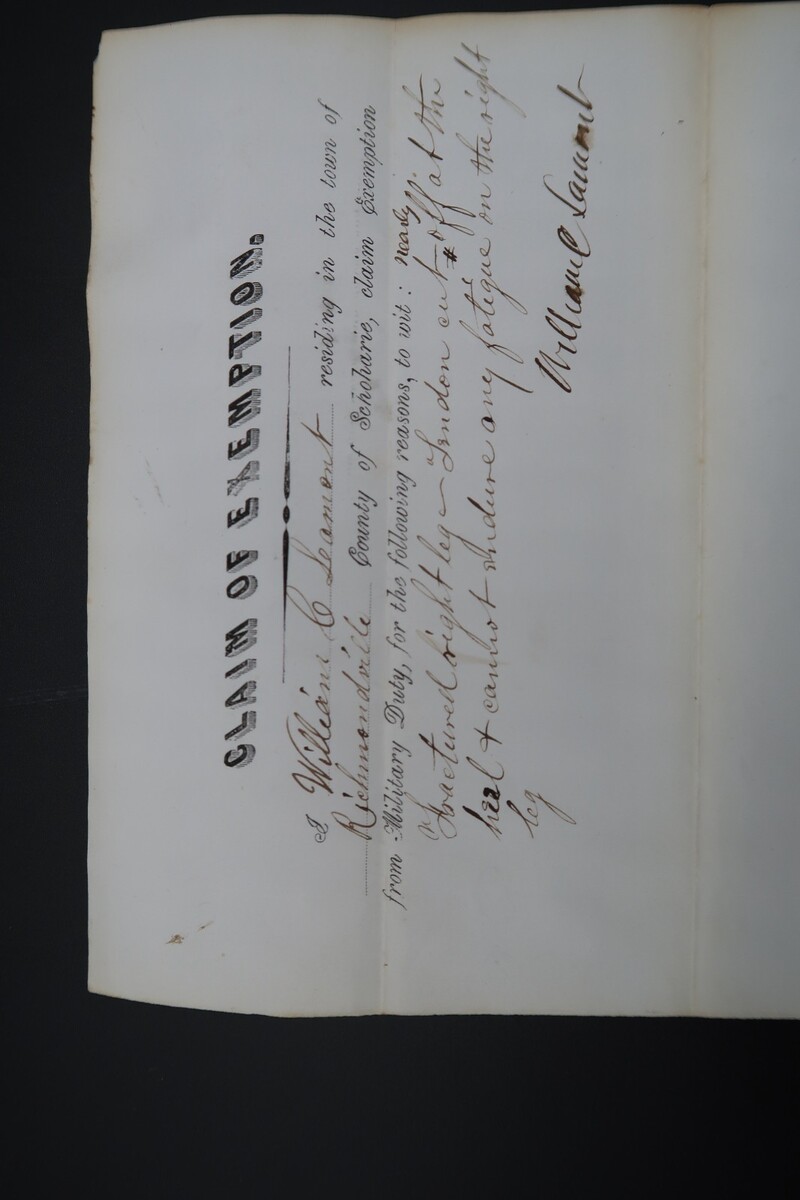 CLAIM OF EXEMPTION.
I William C Leamont residing in the town of
Richmondville County of Schoharie, claim Exemption
from Military Duty, for the following reasons, to wit:
nearly
Fractured right leg – Tendon cut off at the
heel & cannot endure any fatigue on the right
leg
William C Lamont